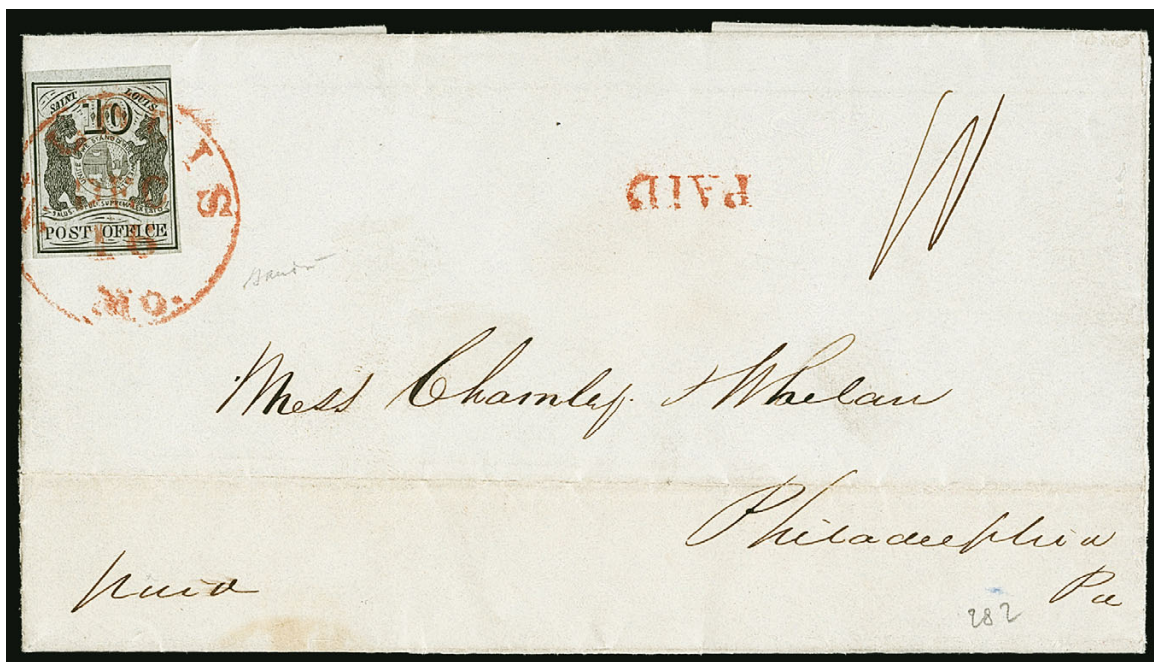 SAINT LOUIS
10
POST OFFICE
LOUIS
16
MO.
PAID
10
Mess Charnley & Whelan
Philadelphia
Pa
paid
282